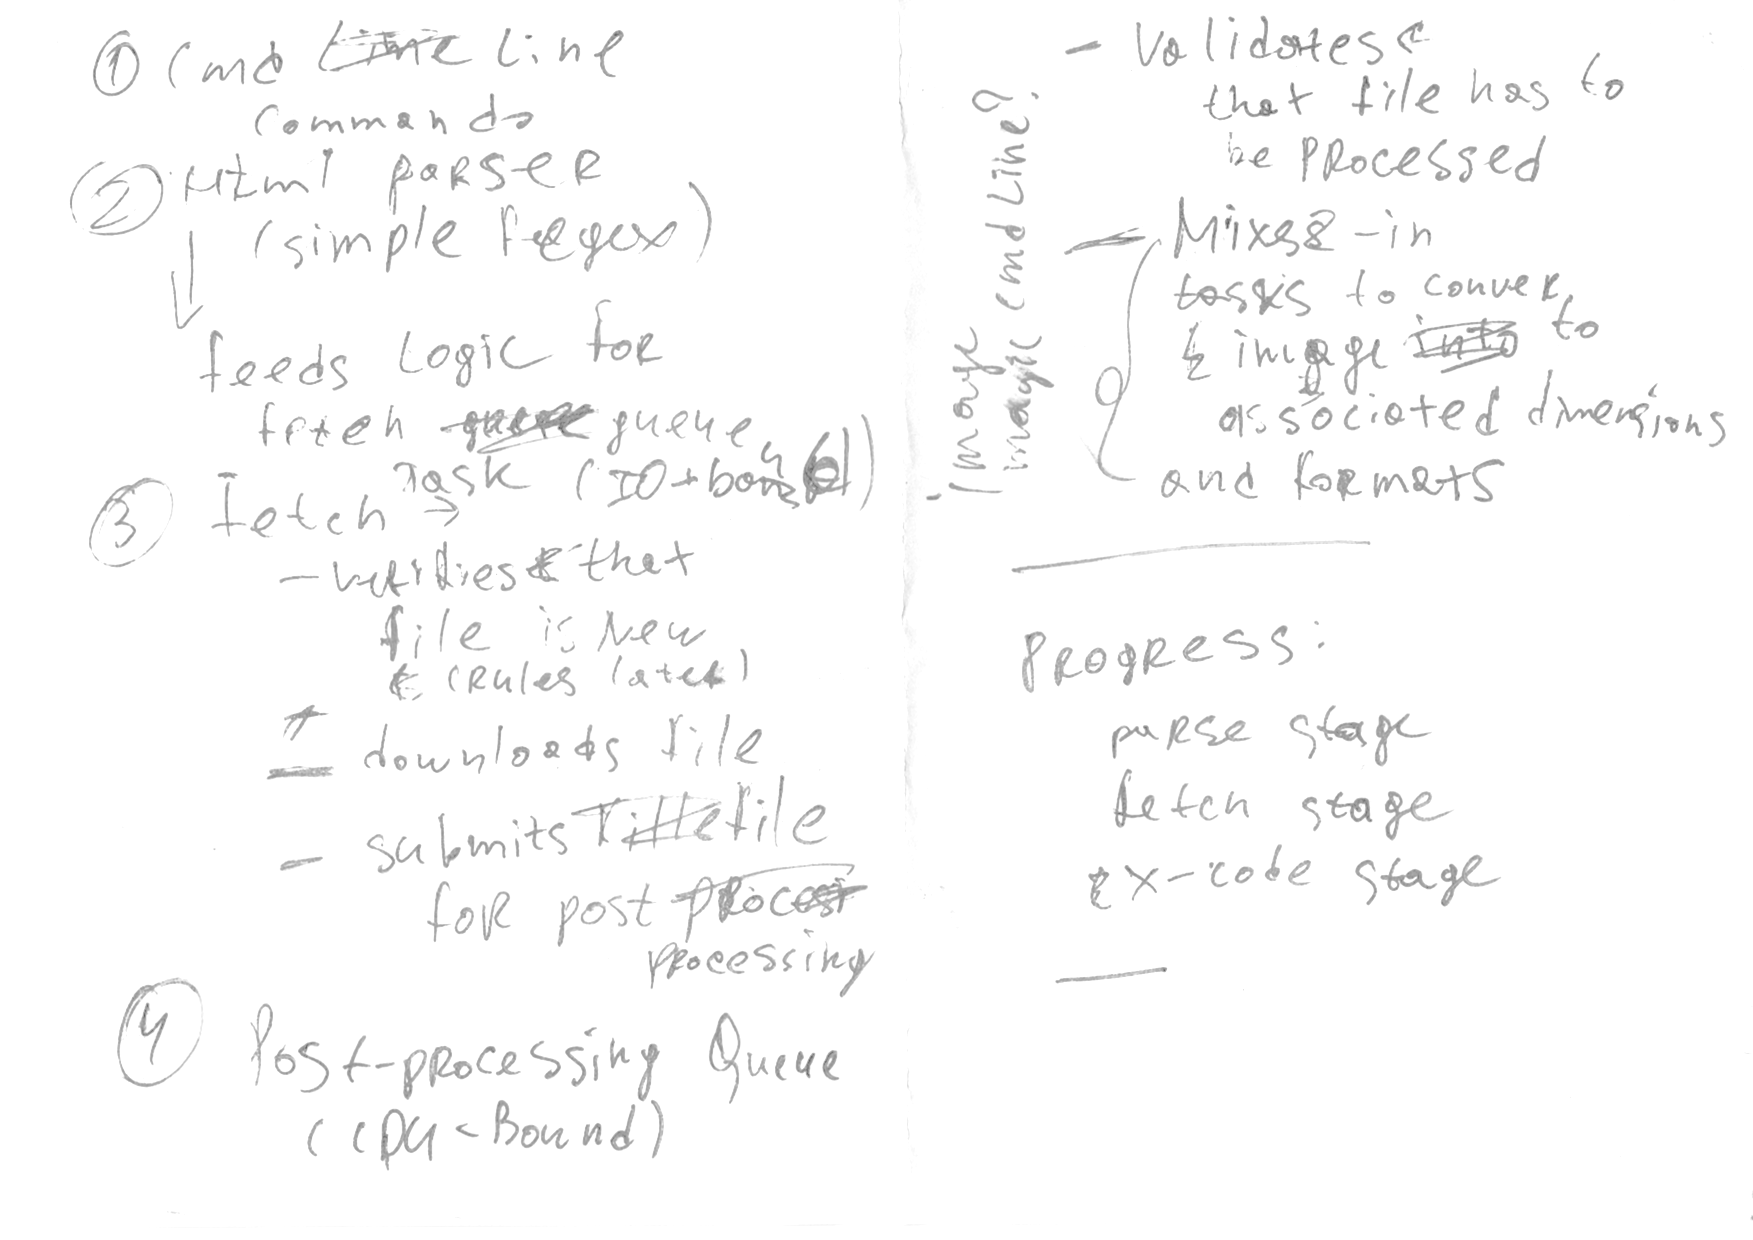 ① Cmd Line
commands
② Html parser
(simple Regex)
↓
feeds Logic for
fetch queue
③ Fetch Task (IO-bound)
- verifies that
file is New
(Rules later)
- downloads file
- submits file
for post
processing
④ Post-processing Queue
(CPU-Bound)
- Validates
that file has to
be processed
- Mixes-in
tasks to conver
t image to
associated dimensions
and formats
Image
magic cmd Line?
Progress:
parse stage
fetch stage
x-code stage